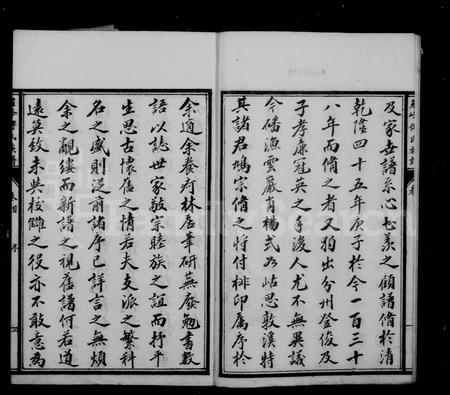 及家世譜系心尤羨之顧譜脩於清
乾隆四十五年庚子於今一百三十
八年而脩之者又獨出分州登俊及
子孝廉冠英之手後人尤不無異議
今磻漁雲巖肖楊式為岵思敦溪特
其諸君鳩宗脩之將付梓印属序於
余適余養疴林居筆研蕪廢勉書數
語以誌世家敬宗睦族之誼而抒平
生思古懷舊之情若夫支派之繁科
名之盛則泛前諸序已詳言之無煩
余之覼縷而新譜之視舊譜何若道
遠莫致未與校讎之役亦不敢意為
卷首
序
FamilySearch